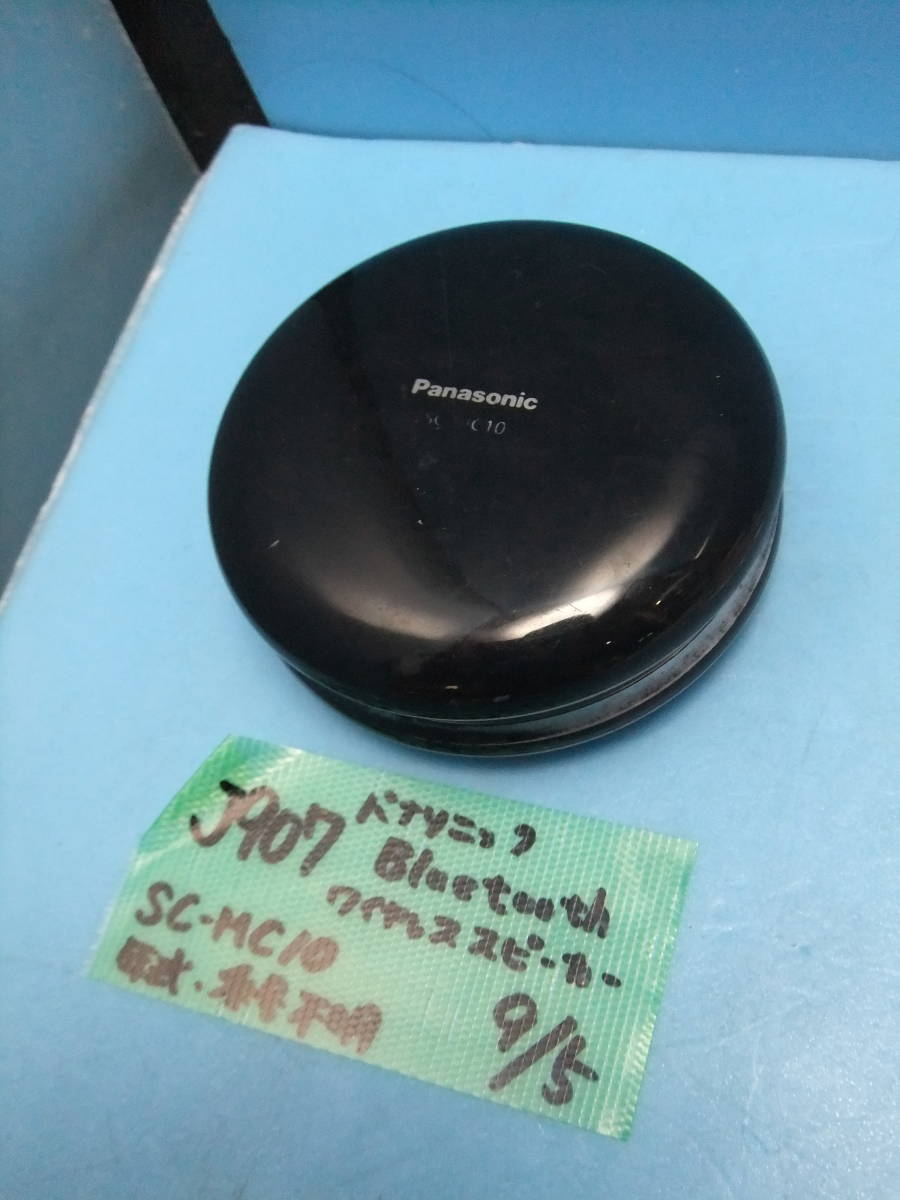 Panasonic
C10
J907 パナソニック
Bluetooth
SC-MC10 ワイヤレススピーカー
不明
9/5